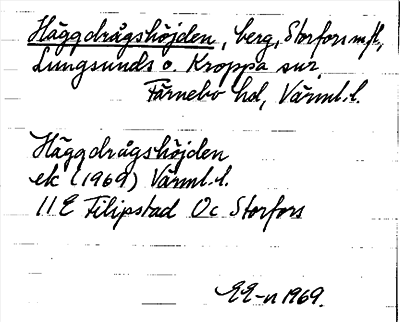 Häggdrågshöjden, berg, Storfors mfl,
Lungsunds o. Kroppa snr,
Färnebo hd, Värml. l.
Häggdrågshöjden
ek (1969) Värml. l.
11E Filipstad Oc Storfors
EE-n 1969.